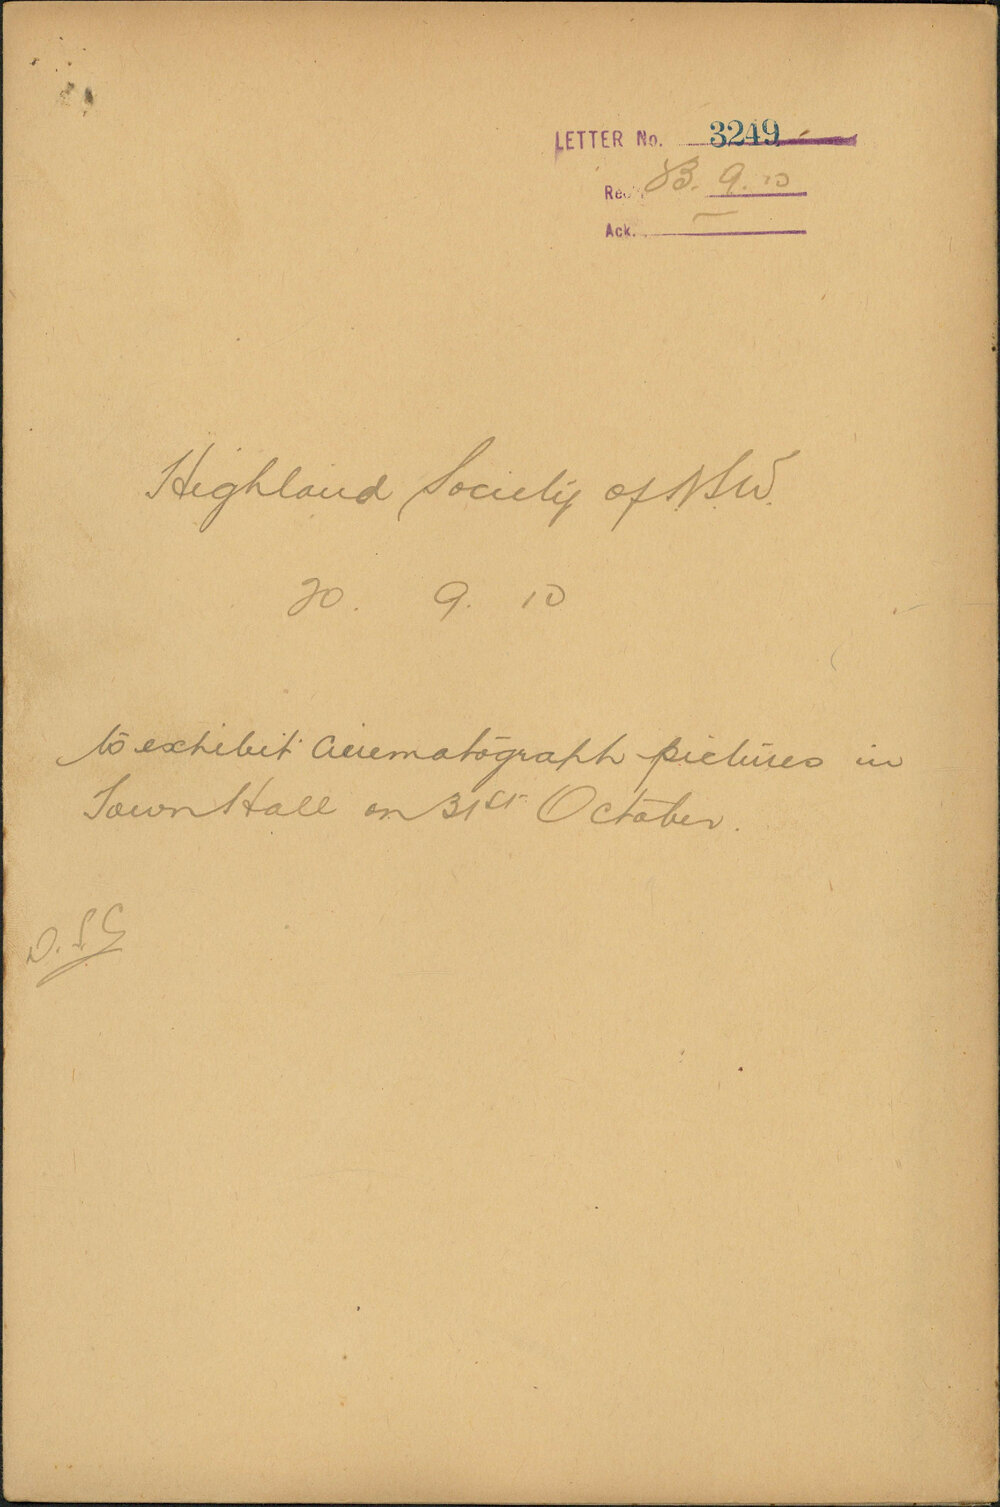 LETTER No. 3249
Rec'd 23. 9. 10
Ack. —
Highland Society of NSW.
20. 9. 10
to exhibit Cinematograph pictures in
Town Hall on 31st October.